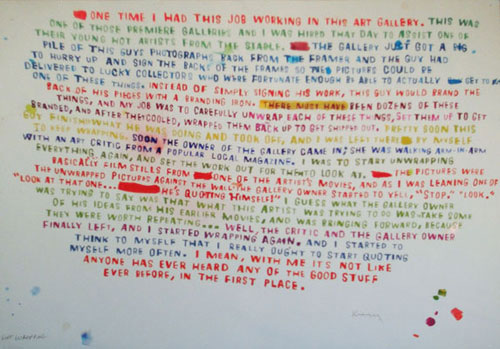 ONE TIME I HAD THIS JOB WORKING IN THIS ART GALLERY. THIS WAS
ONE OF THOSE PREMIERE GALLERIES AND I WAS HIRED THAT DAY TO ASSIST ONE OF
THEIR YOUNG HOT ARTISTS FROM THE STABLE. THE GALLERY JUST GOT A BIG
PILE OF THIS GUYS PHOTOGRAPHS BACK FROM THE FRAMER AND THE GUY HAD
TO HURRY UP AND SIGN THE BACKS OF THE FRAMES SO THE PICTURES COULD BE
DELIVERED TO LUCKY COLLECTORS WHO WERE FORTUNATE ENOUGH TO BE ABLE TO ACTUALLY GET TO
ONE OF THESE THINGS. INSTEAD OF SIMPLY SIGNING HIS WORK, THIS GUY WOULD BRAND THE
BACK OF HIS PIECES WITH A BRANDING IRON. THERE MUST HAVE BEEN DOZENS OF THESE
THINGS, AND MY JOB WAS TO CAREFULLY UNWRAP EACH OF THESE THINGS, SET THEM UP TO GET
BRANDED, AND AFTER THEY COOLED, WRAPPED THEM BACK UP TO GET SHIPPED OUT. PRETTY SOON THIS
GUY FINISHED WHAT HE WAS DOING AND TOOK OFF, AND I WAS LEFT THERE BY MYSELF
TO KEEP WRAPPING. SOON THE OWNER OF THE GALLERY CAME IN; SHE WAS WALKING ARM IN ARM
WITH AN ART CRITIC FROM A POPULAR LOCAL MAGAZINE. I WAS TO START UNWRAPPING
EVERYTHING AGAIN, AND SET THE WORK OUT FOR THEM TO LOOK AT. THE PICTURES WERE
BASICALLY FILM STILLS FROM ONE OF THE ARTIST'S MOVIES, AND AS I WAS LEANING ONE OF
THE UNWRAPPED PICTURES AGAINST THE WALL THE GALLERY OWNER STARTED TO YELL, "STOP." "LOOK."
"LOOK AT THAT ONE... HE'S QUOTING HIMSELF!" I GUESS WHAT THE GALLERY OWNER
WAS TRYING TO SAY WAS THAT WHAT THIS ARTIST WAS TRYING TO DO WAS TAKE SOME
OF HIS IDEAS FROM HIS EARLIER MOVIES, AND WAS BRINGING FORWARD, BECAUSE
THEY WERE WORTH REPEATING... WELL, THE CRITIC AND THE GALLERY OWNER
FINALLY LEFT, AND I STARTED WRAPPING AGAIN. AND I STARTED TO
THINK TO MYSELF THAT I REALLY OUGHT TO START QUOTING
MYSELF MORE OFTEN. I MEAN, WITH ME IT'S NOT LIKE
ANYONE HAS EVER HEARD ANY OF THE GOOD STUFF
EVER BEFORE, IN THE FIRST PLACE.